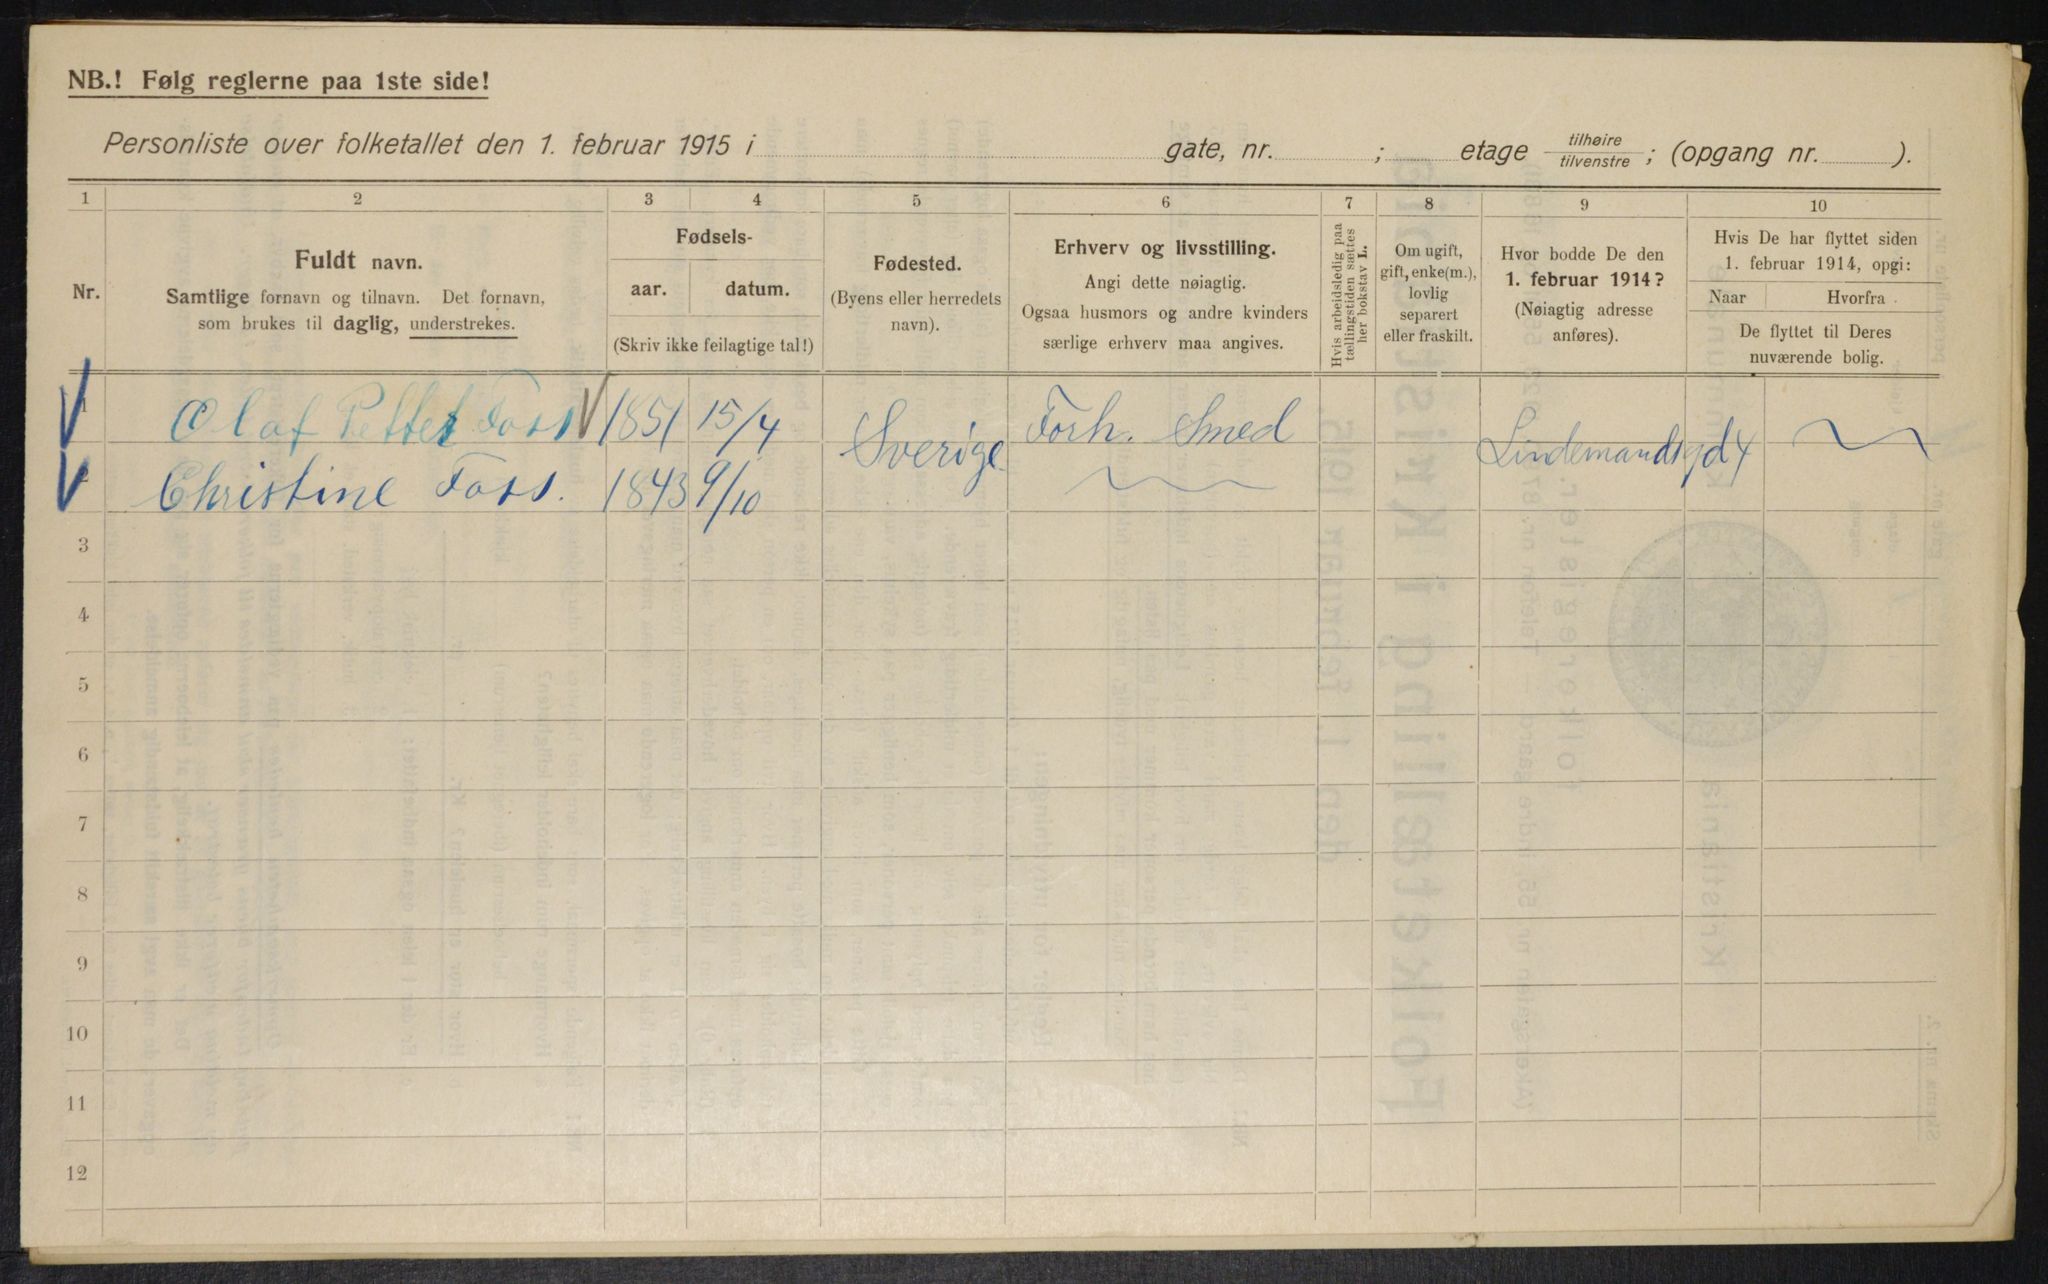 NB.! Følg reglerne paa 1ste side!
Personliste over folketallet den 1. februar 1915 i gate, nr. ; etage tilhøire / tilvenstre ; (opgang nr. ).
1 2 3 4 5 6 7 8 9 10
Nr.
Fuldt navn.
Samtlige fornavn og tilnavn. Det fornavn,
som brukes til daglig, understrekes.
Fødsels-
aar. datum.
(Skriv ikke feilagtige tal!)
Fødested.
(Byens eller herredets
navn).
Erhverv og livsstilling.
Angi dette nøiagtig.
Ogsaa husmors og andre kvinders
særlige erhverv maa angives.
Hvis arbeidsledig paa
tællingstiden sættes
her bokstav L.
Om ugift,
gift, enke(m.),
lovlig
separert
eller fraskilt.
Hvor bodde De den
1. februar 1914?
(Nøiagtig adresse
anføres).
Hvis De har flyttet siden
1. februar 1914, opgi:
Naar Hvorfra
De flyttet til Deres
nuværende bolig.
1 Olaf Petter Foss 1851 15/4 Sverige Forh. Smed Lindemandsgd 4
2 Christine Foss. 1843 9/10
3
4
5
6
7
8
9
10
11
12